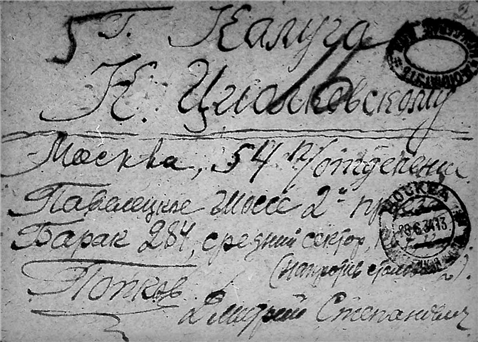 5 г. Калуга
К. Циолковскому
Москва, 54 п/отделение
Павелецкое шоссе 2й
Барак 284, средний сектор,
(напротив
Попков
Дмитрий Степанович
МОСКВА